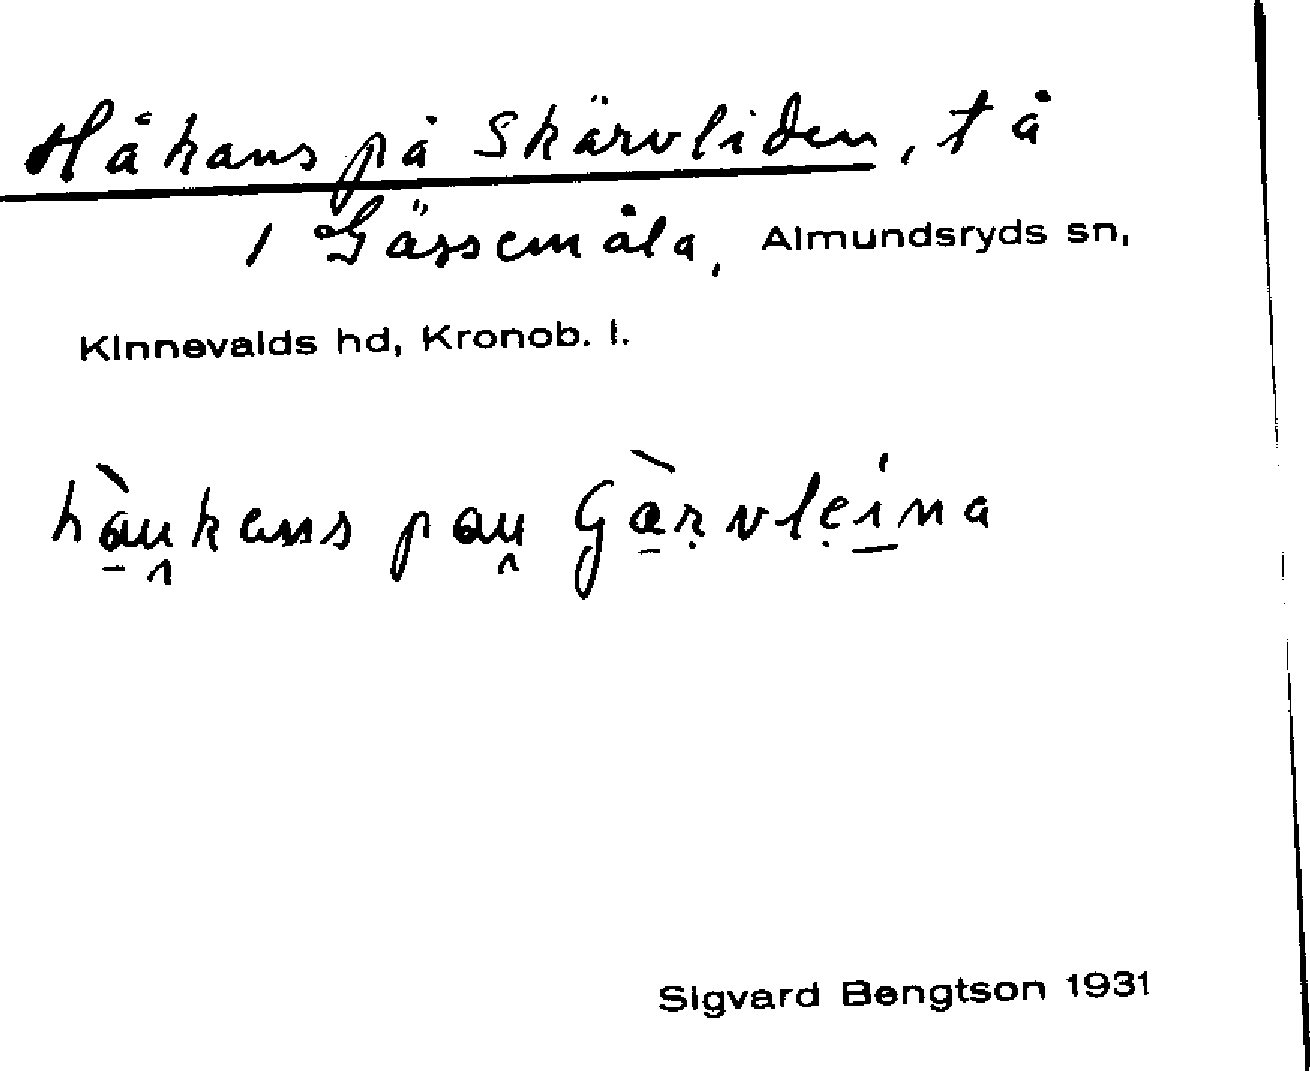 Håkans på Skärvliden, t å
1 Gässemåla, Almundsryds sn,
Kinnevalds hd, Kronob. l.
hàu̯kans pau̯ 
Sigvard Bengtson 1931